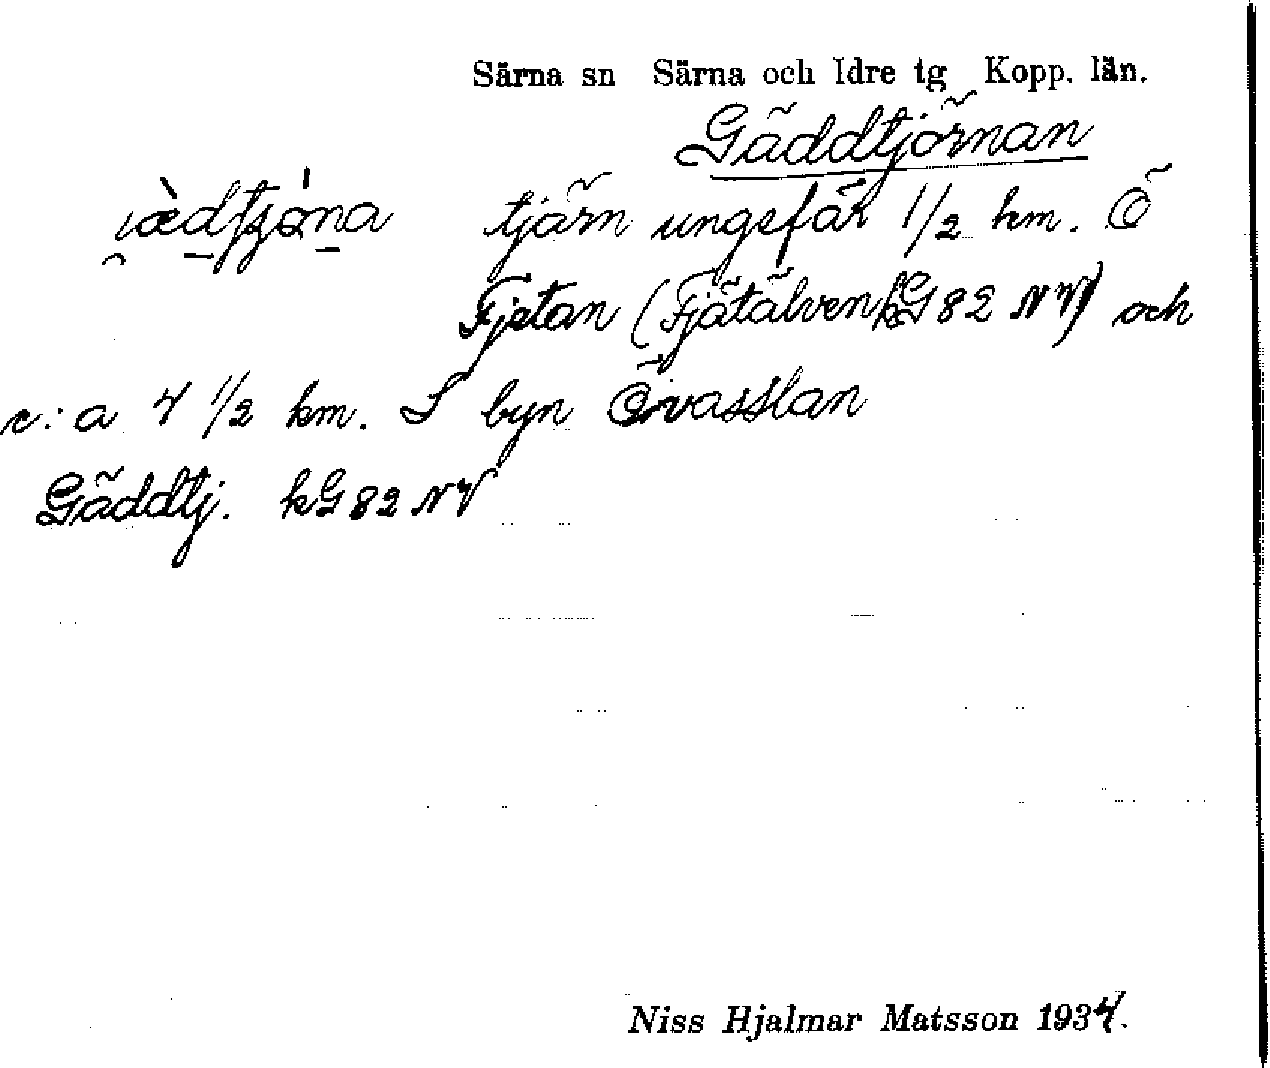 Särna sn Särna och Idre tg Kopp. län.
Gäddtjörnan
tjärn ungefär 1/2 km. Ö
Fjetan (Fjätälven kG 82 NV) och
c:a 4 1/2 km. S byn Övasslan
Gäddtj. kG 82 NV
Niss Hjalmar Matsson 1934.